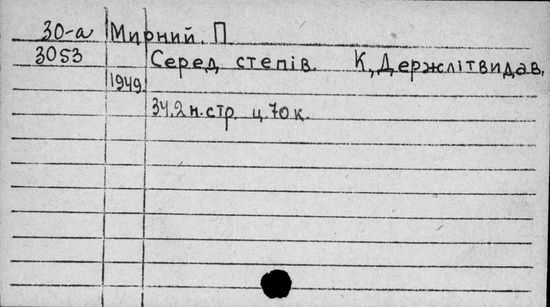 30-а Мирний. П
3053 Серед степів. К, Держлітвидав,
1949.
34, 2н. стр. ц. 70 к.